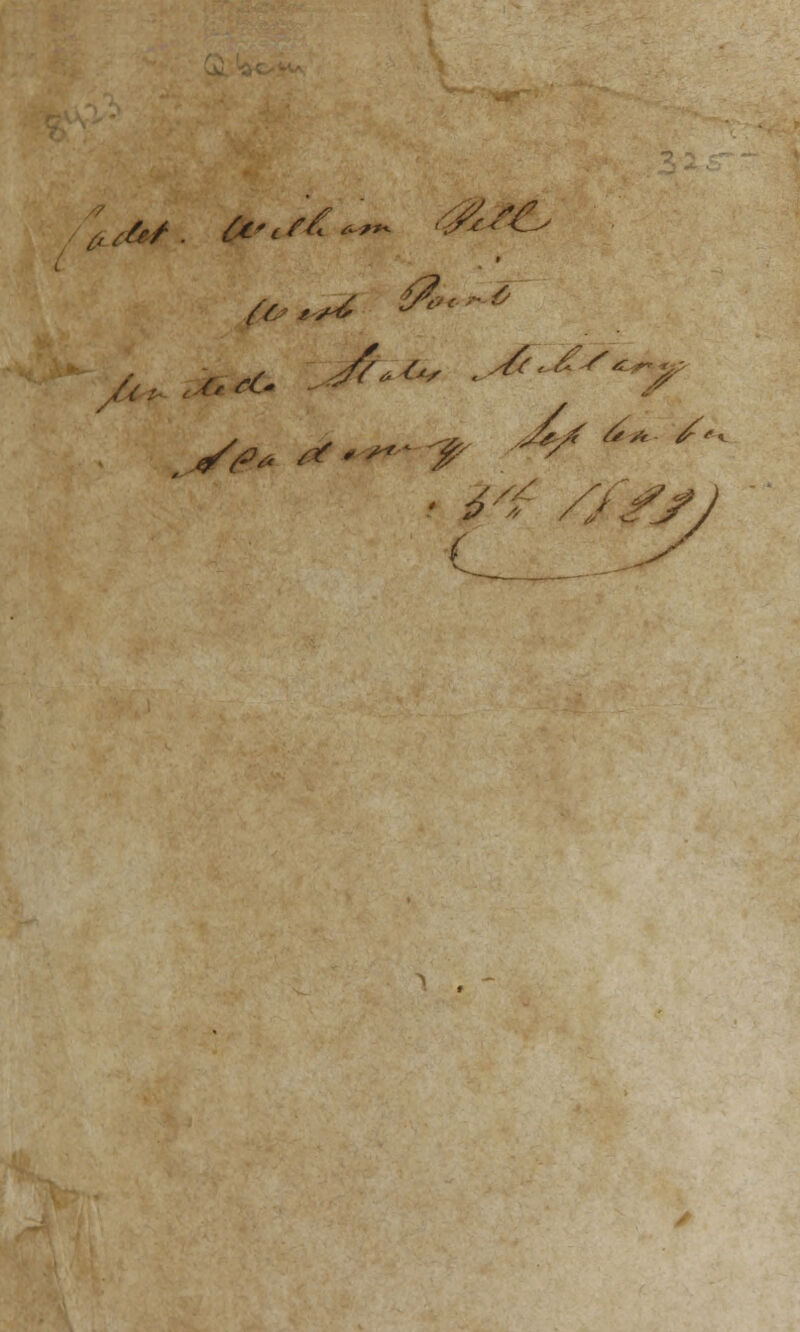 8423
325--
Cadet. William Bell
West Point
United States Military
Academy September
5th 1823